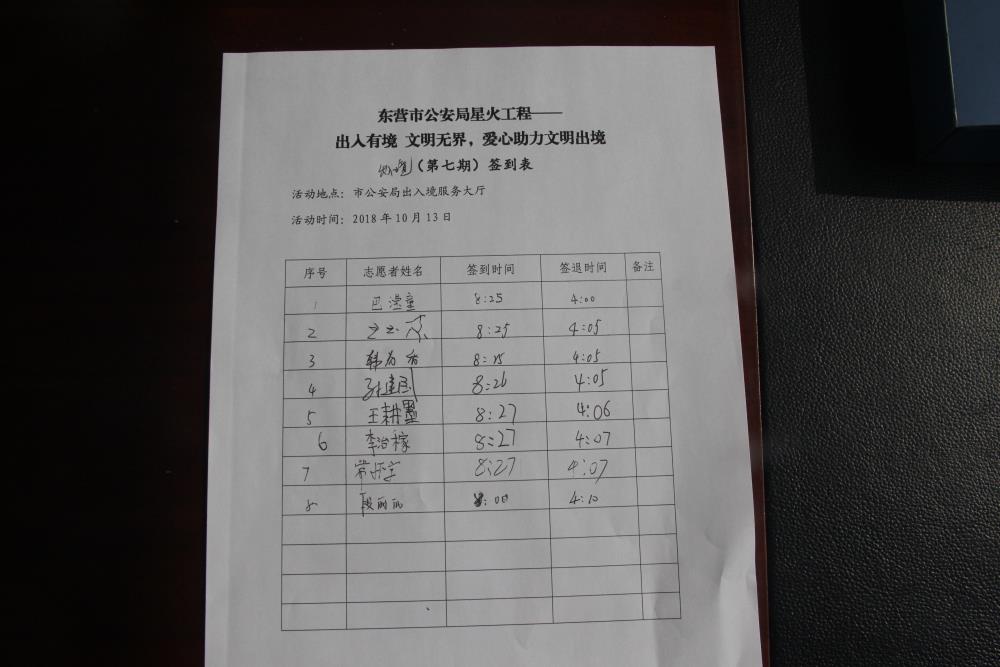 东营市公安局星火工程——
出入有境 文明无界，爱心助力文明出境
（第七期）签到表
活动地点：市公安局出入境服务大厅
活动时间：2018年10月13日
序号 志愿者姓名 签到时间 签退时间 备注
1 巴滢童 8:25 4:00
2 8:25 4:05
3 8:15 4:05
4 孙建国 8:26 4:05
5 王耕墨 8:27 4:06
6 李治稼 8:27 4:07
7 常开宇 8:27 4:07
8 段丽丽 8:00 4:10